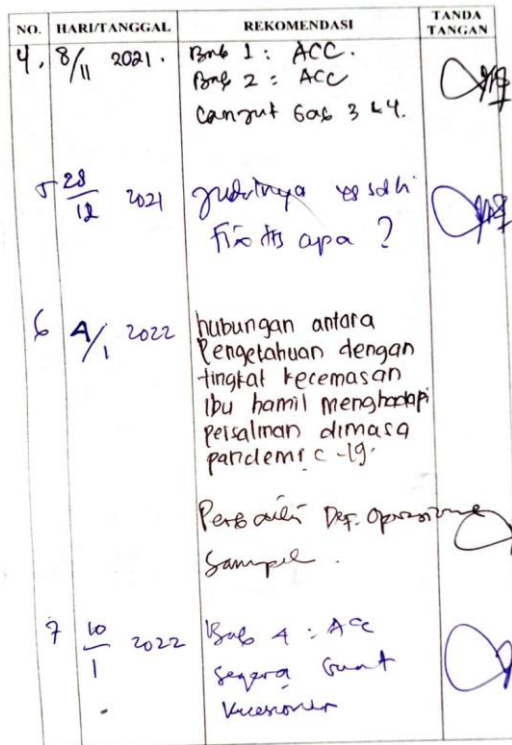 NO. HARI/TANGGAL REKOMENDASI TANDA TANGAN
4. 8/11 2021. Bab 1: ACC.
Bab 2: ACC
Lanjut bab 3 & 4.
5 28/12 2021 Judulnya yg sdh
Fix itu apa?
6 4/1 2022 hubungan antara
Pengetahuan dengan
tingkat kecemasan
ibu hamil menghadapi
persalinan dimasa
pandemi c-19.
Perbaiki Def. Operasional
Sampel.
7 10/1 2022 Bab 4: ACC
segera buat
kuesioner